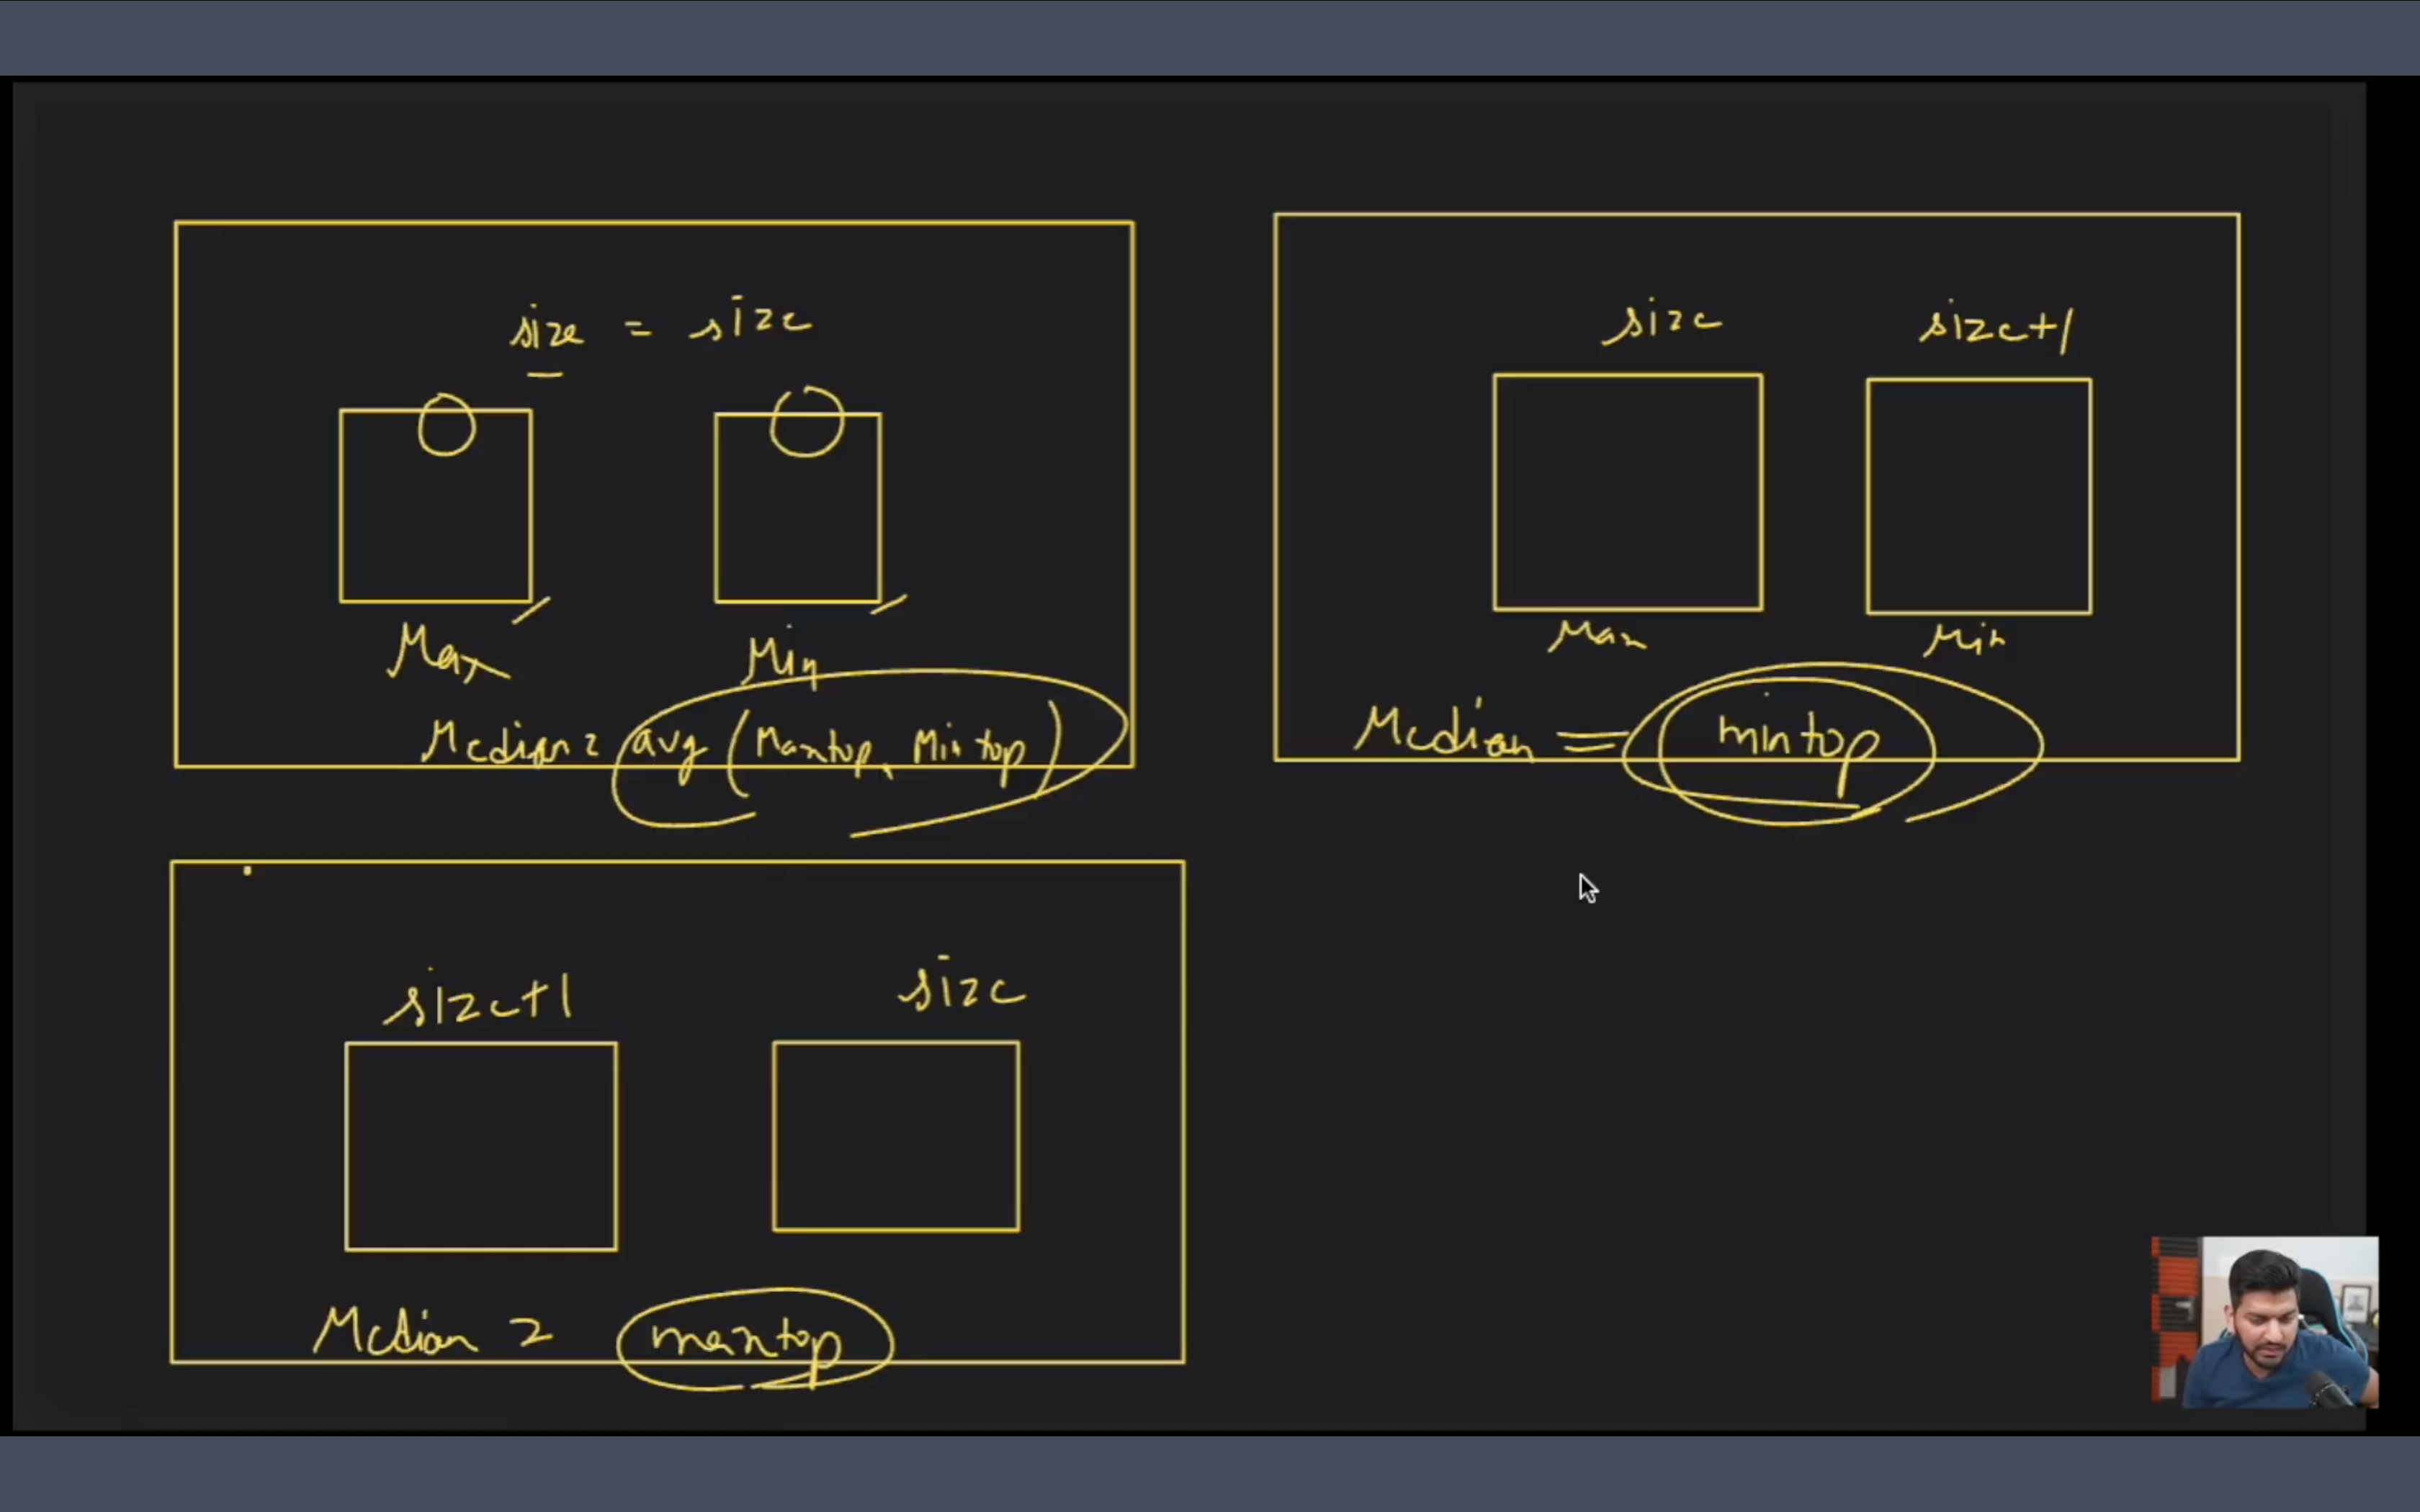 size = size
Max
Min
Median = avg (Maxtop, Mintop)
size
size+1
Max
Min
Median = mintop
size+1
size
Median = maxtop